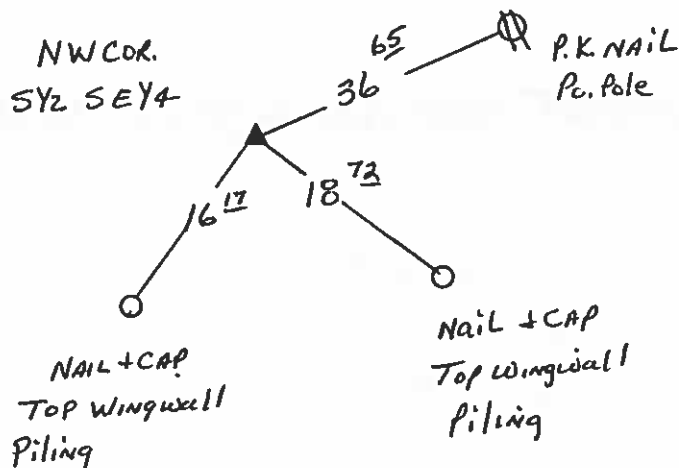 NW COR.
S½ SE¼
36 65
P.K. NAIL
Po. Pole
16 17
18 72
NAIL + CAP
TOP WINGWALL
Piling
NAIL + CAP
TOP WINGWALL
Piling